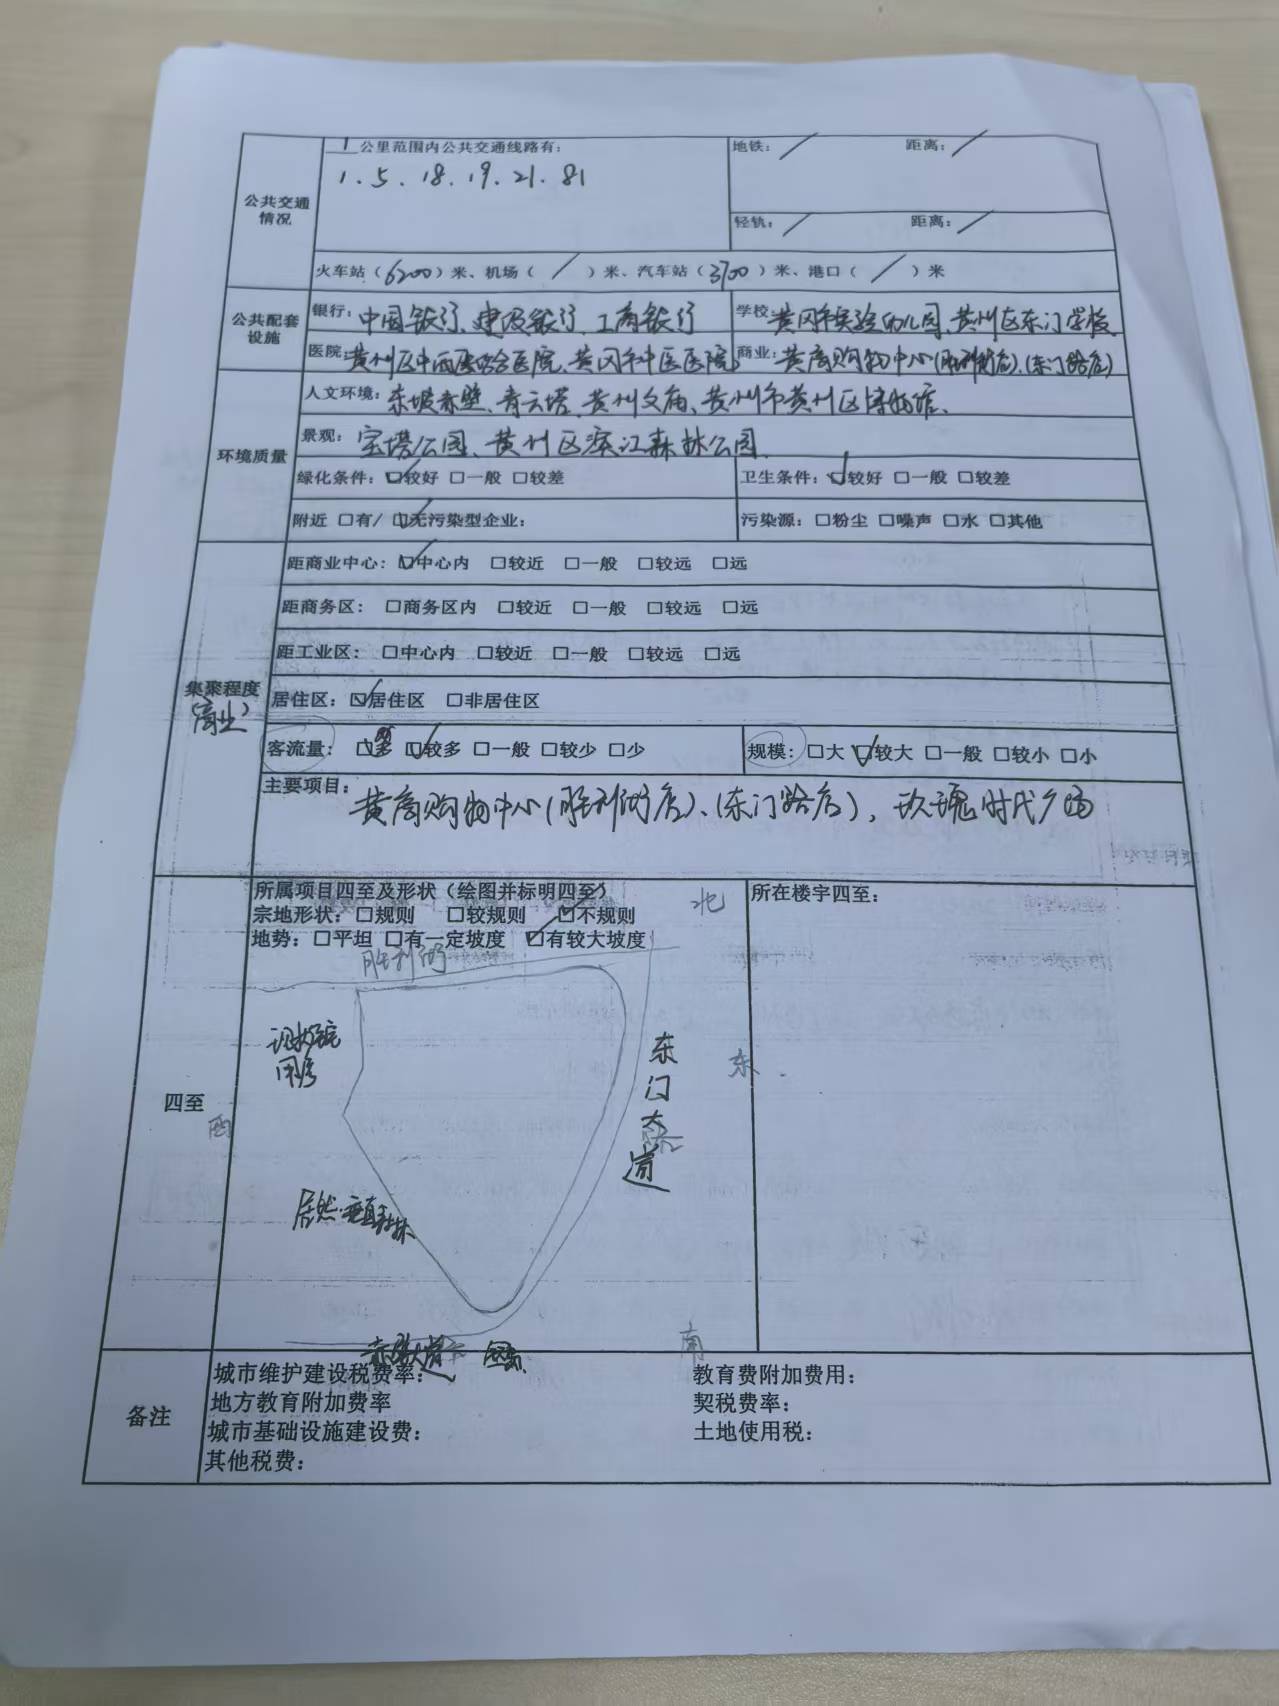 公共交通情况
1 公里范围内公共交通线路有:
1. 5. 18. 19. 21. 81
地铁: / 距离: /
轻轨: / 距离: /
火车站(6200)米、机场( / )米、汽车站(3700)米、港口( / )米
公共配套设施
银行: 中国银行、建设银行、工商银行
学校: 黄冈市实验幼儿园、黄州区东门学校
医院: 黄州区中西医结合医院、黄冈市中医医院
商业: 黄商购物中心(胜利街店)、(东门路店)
环境质量
人文环境: 东坡赤壁、青云塔、黄州文庙、黄州市黄州区博物馆、
景观: 宝塔公园、黄州区滨江森林公园
绿化条件: ☑较好 □一般 □较差
卫生条件: ☑较好 □一般 □较差
附近 □有/ ☑无污染型企业:
污染源: □粉尘 □噪声 □水 □其他
集聚程度
(商业)
距商业中心: ☑中心内 □较近 □一般 □较远 □远
距商务区: □商务区内 □较近 □一般 □较远 □远
距工业区: □中心内 □较近 □一般 □较远 □远
居住区: ☑居住区 □非居住区
客流量: □多 ☑较多 □一般 □较少 □少
规模: □大 ☑较大 □一般 □较小 □小
主要项目:
黄商购物中心(胜利街店)、(东门路店), 玫瑰时代广场
四至
所属项目四至及形状(绘图并标明四至)
宗地形状: □规则 □较规则 ☑不规则
地势: □平坦 □有一定坡度 ☑有较大坡度
所在楼宇四至:
北
胜利街
用房
东门大道
东
西
居然·
南
备注
城市维护建设税费率:
教育费附加费用:
地方教育附加费率
契税费率:
城市基础设施建设费:
土地使用税:
其他税费: